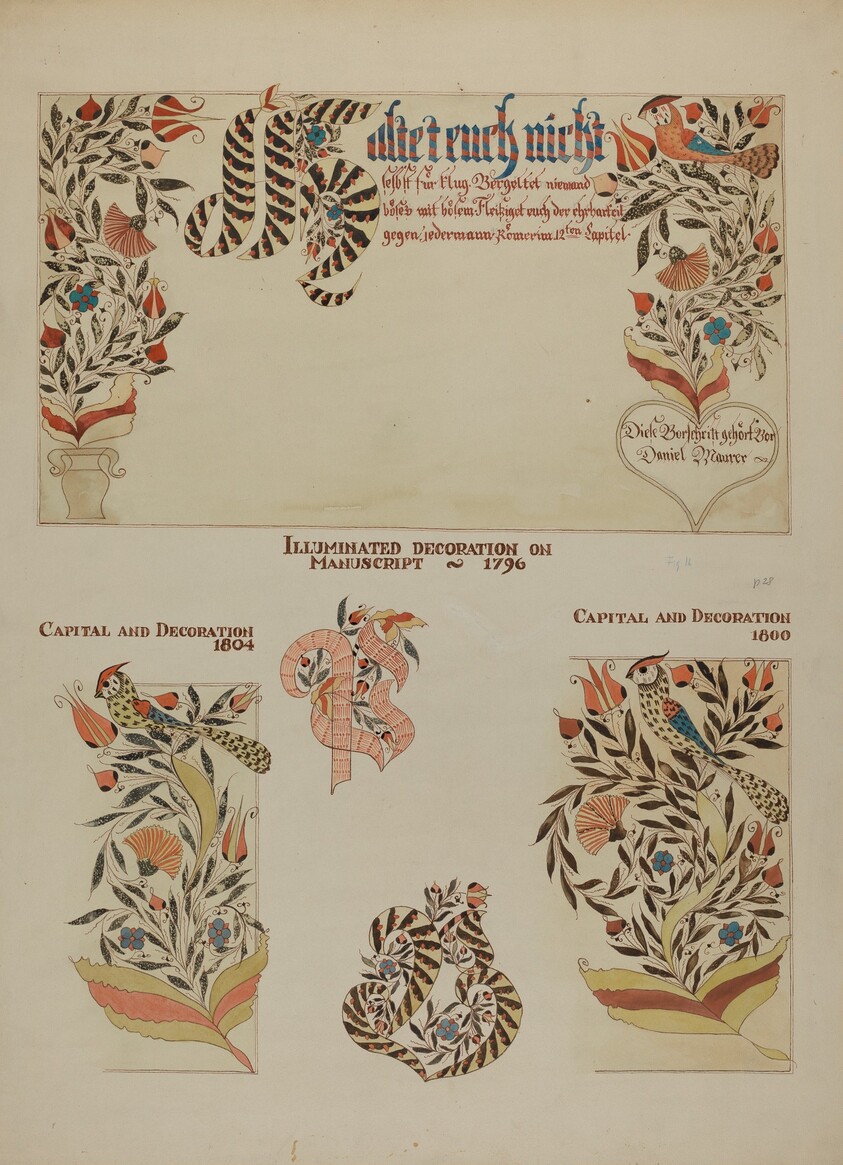 Haltet euch nicht
selbst für klug. Vergeltet niemand
böses mit bösem. Fleißiget euch der ehrbarkeit
gegen jedermann. Römer im 12ten Capitel.
Diese Vorschrift gehört Vor
Daniel Maurer ~
ILLUMINATED DECORATION ON
MANUSCRIPT ~ 1796
p 28
CAPITAL AND DECORATION
1804
CAPITAL AND DECORATION
1800